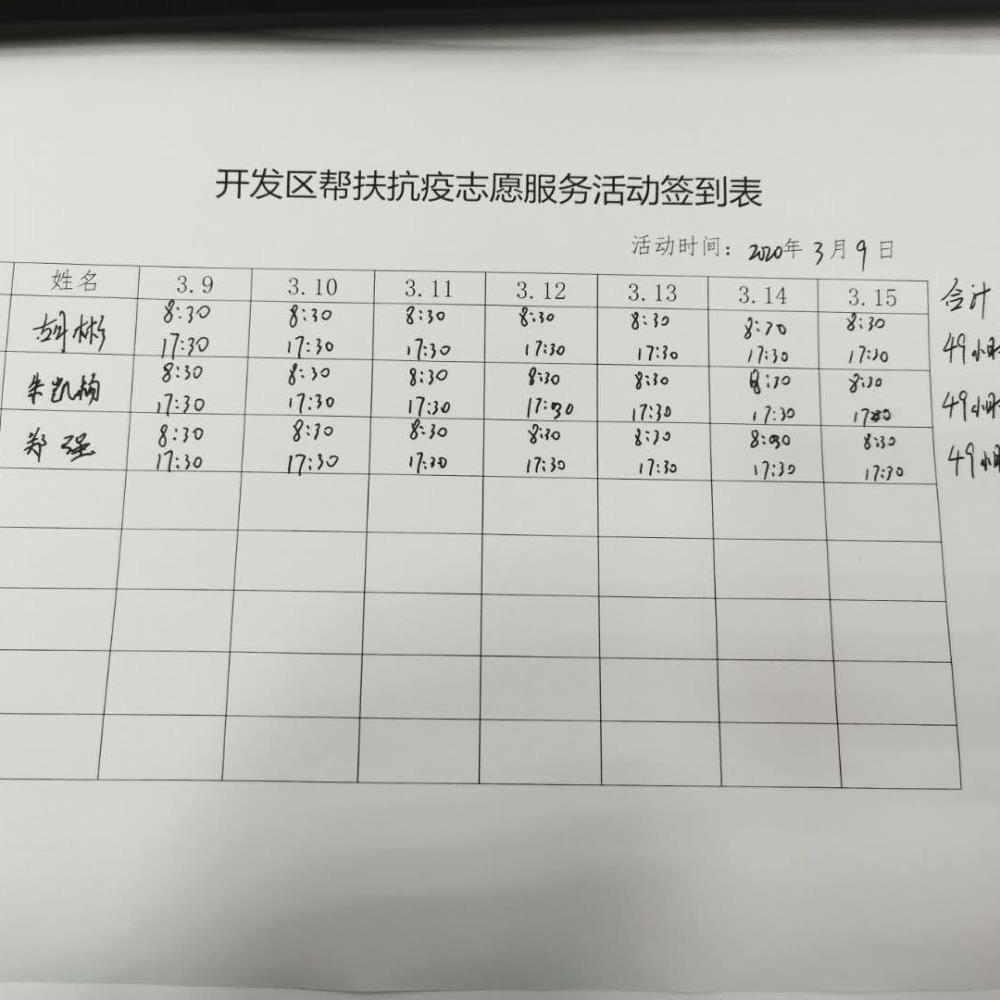 开发区帮扶抗疫志愿服务活动签到表
活动时间：2020年3月9日
姓名 3.9 3.10 3.11 3.12 3.13 3.14 3.15 合计
胡彬 8:30 8:30 8:30 8:30 8:30 8:30 8:30 49小时
17:30 17:30 17:30 17:30 17:30 17:30 17:30
朱凯杨 8:30 8:30 8:30 8:30 8:30 8:30 8:30 49小时
17:30 17:30 17:30 17:30 17:30 17:30 17:30
郑强 8:30 8:30 8:30 8:30 8:30 8:30 8:30 49小时
17:30 17:30 17:30 17:30 17:30 17:30 17:30